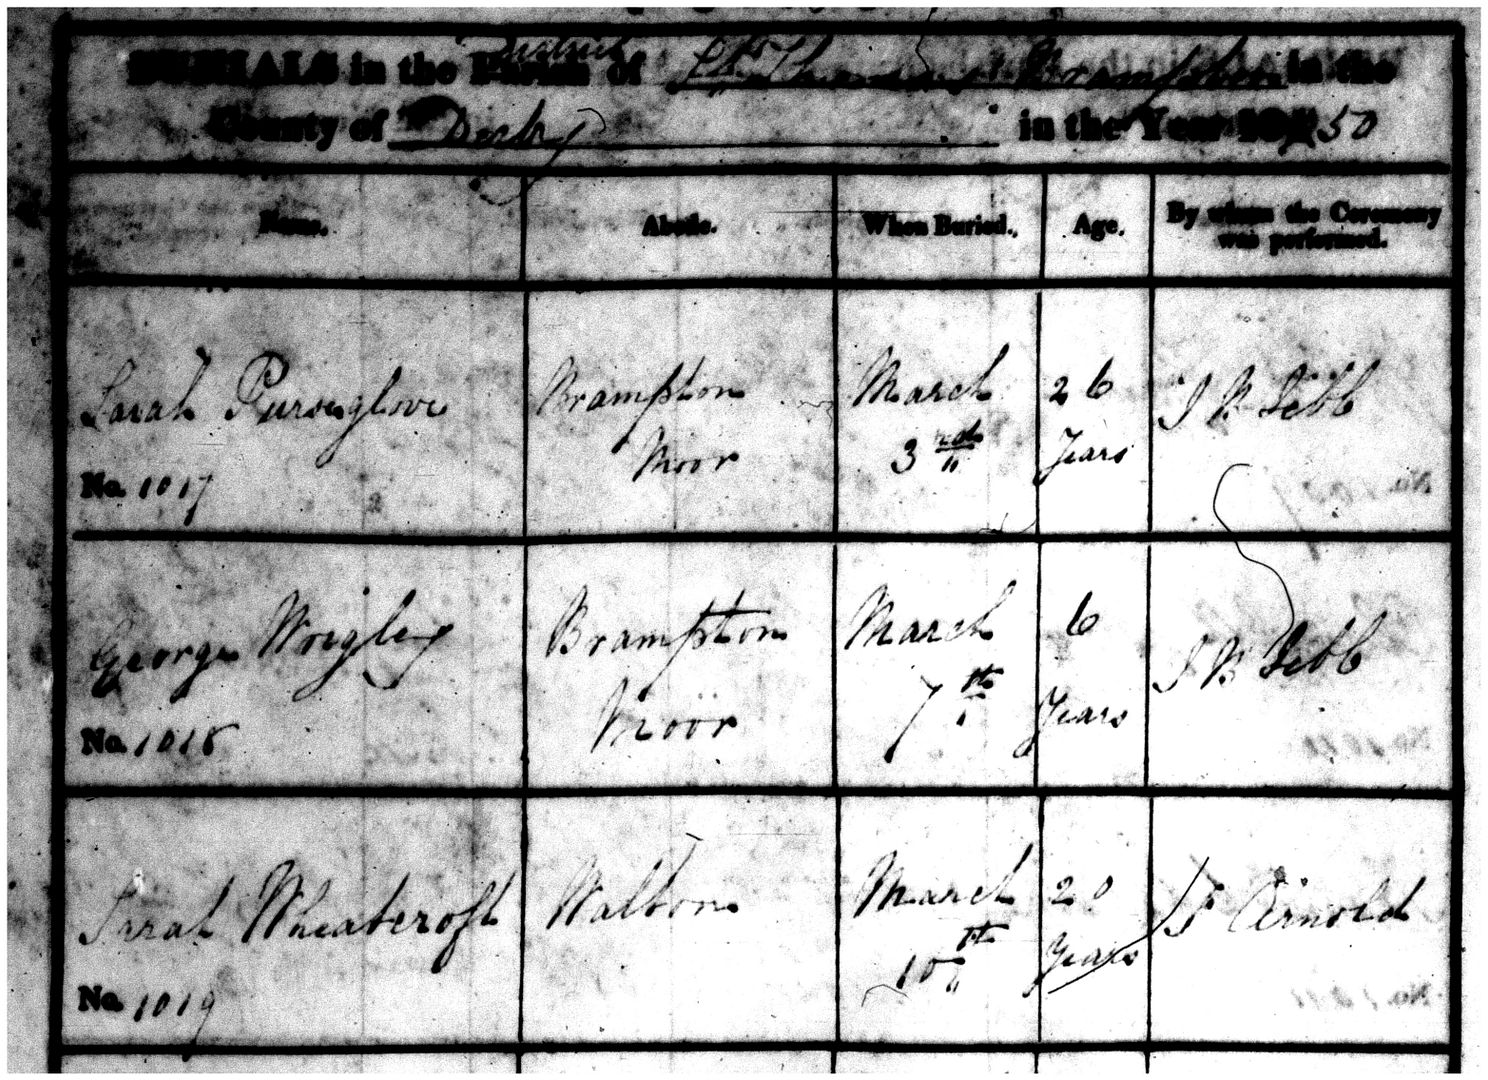 BURIALS in the Parish District of St Thomas Brampton in the
County of Derby in the Year 1850
Name. Abode. When Buried. Age. By whom the Ceremony was performed.
Sarah Purseglove Brampton March 26 J B Jebb
Moor 3rd Years
No. 1017
George Wrigley Brampton March 6 J B Jebb
Moor 7th Years
No. 1018
Sarah Wheatcroft Walton March 20 Arnold
10th Years
No. 1019